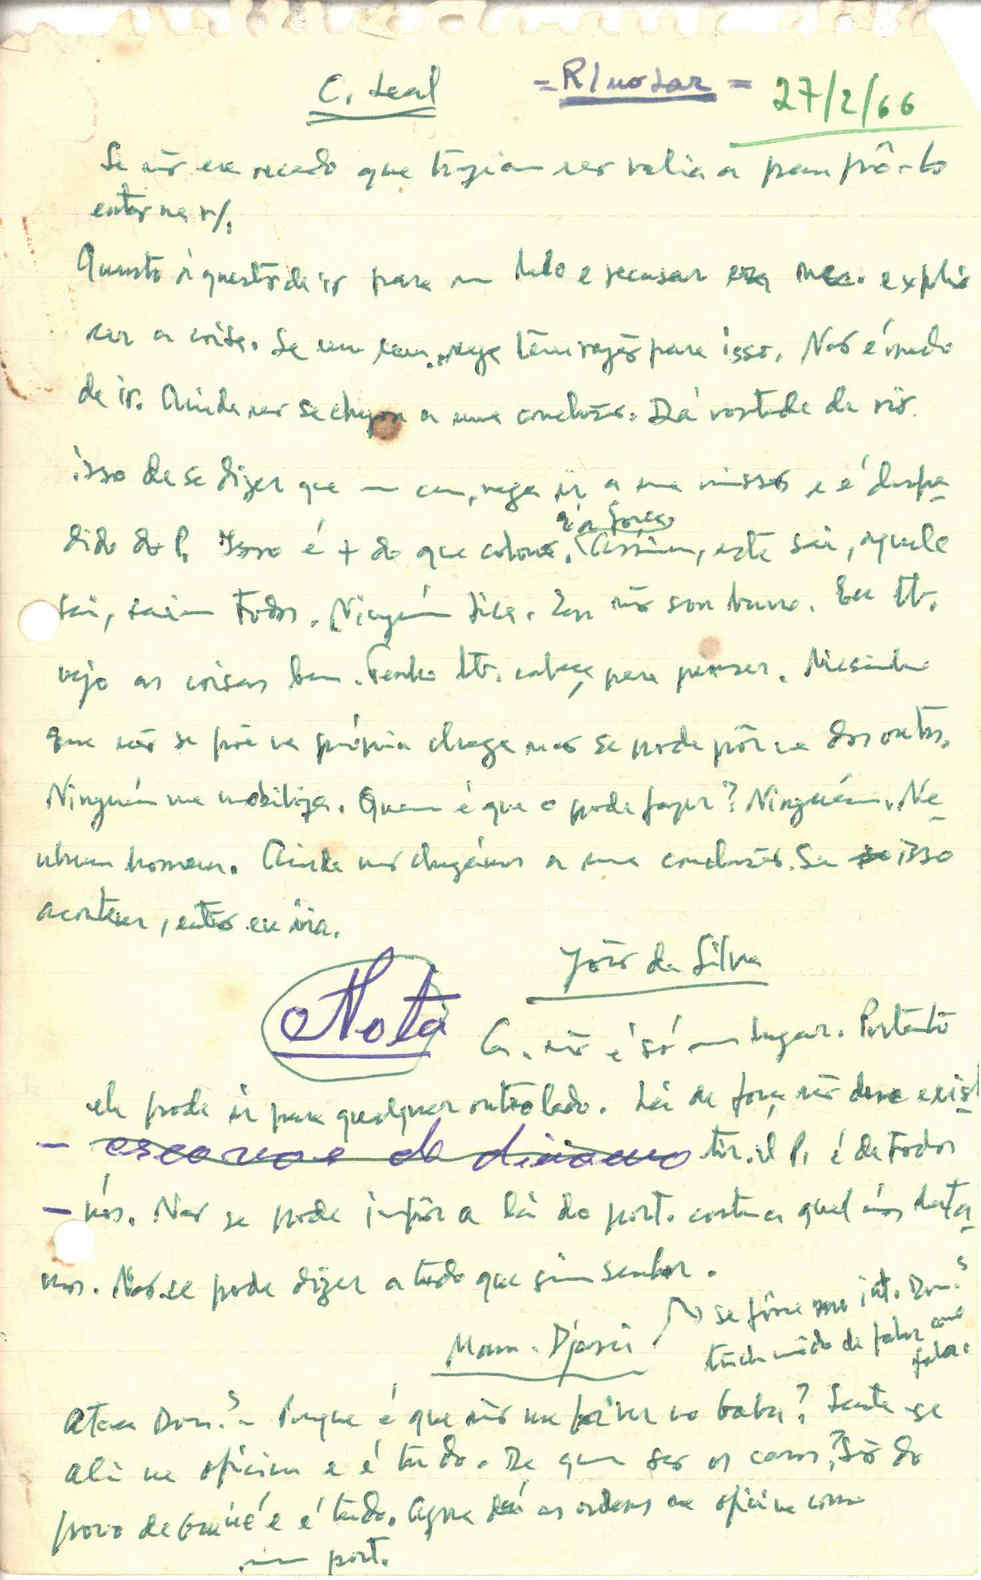 C. Leal = R/nosar = 27/2/66
Se não era recado que traziam não valia a pena pô-lo
entar na r/.
Quanto à questão de ir para um lado e recusar era nec. expli
car a coisa. Se um cam. nega têm razões para isso. Não é medo
de ir. Ainda não se chegou a uma conclusão. Dá vontade de rir
isso de se dizer que um cam. nega ir a uma missão e é despe-
dido do P. Isso é + do que colono.
é à força
Assim, este sai, aquele
sai, saiem todos. Ninguém fica. Eu não sou burro. Eu tb.
vejo as coisas bem. Tenho tb. cabeça para pensar. Mesinha
que não se põe na própria chaga não se pode pôr na dos outros.
Ninguém me mobiliza. Quem é que o pode fazer? Ninguém. Ne-
nhum homem. Ainda não chegámos a uma conclusão. Se isso
acontecer, então eu iria.
João da Silva
Nota
G. não é só um lugar. Portanto
ele pode ir para qualquer outro lado. Lei de força não deve exis-
tir. O P. é de todos
nós. Não se pode impôr a lei do port. contra a qual nós luta-
mos. Não se pode dizer a tudo que sim senhor.
Mam. Djassi
se fosse no int. Dom.s
tinha mêdo de falar como
falou.
Ataca Dom.s - Porque é que não me
ali na oficina e é tudo. De que são os carros? São do
povo da Guiné e é tudo. Agora dá as ordens na oficina como
um port.